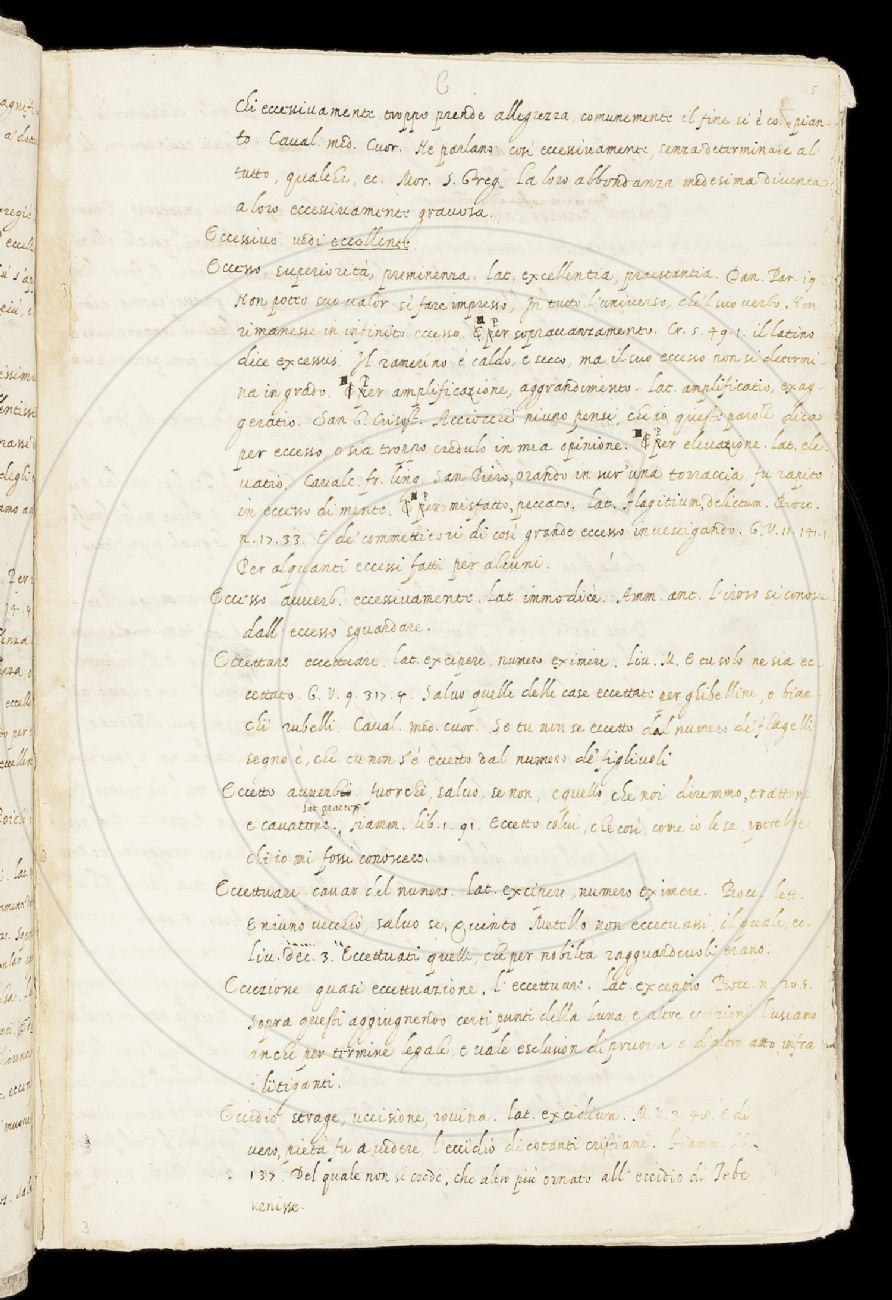 C
5
Chi eccessivamente troppo prende allegrezza, comunemente il fine si è co pian-
to. Caval. med. Cuor. Ne parlano così eccessivamente, senza determinare al
tutto, quale Ei, ec. Mor. S. Greg. La loro abbondanza medesima diventa
a loro eccessivamente gravosa.
Eccessivo vedi eccellente.
Eccesso superiorità, preminenza. lat. excellentia, praestantia. Dan. Par. 19
Non potto suo valor sì fare impresso, In tutto l'universo, che 'l suo verbo, Non
rimanesse in infinito eccesso. ¶ Per sopravanzamento. Cr. 5. 49. 1. il latino
dice excessus. Il ramerino è caldo, e secco, ma il suo eccesso non si determi-
na in grado. ¶ Per amplificazione, aggrandimento. lat. amplificatio, exag-
geratio. San G. Crisost. Acciocchè niuno pensi, che io queste parole dica
per eccesso, o sia troppo credulo in mia opinione. ¶ Per elevazione. lat. ele-
vatio. Cavalc. fr. ling. San Piero, orando in sur'una torraccia fu rapito
in eccesso di mente. ¶ Per misfatto, peccato. lat. flagitium, delictum. Bocc.
n. 17. 33. E de' commettitori di così grande eccesso investigando. G. V. 11. 141. 1
Per alquanti eccessi fatti per alcuni.
Eccesso avverb. eccessivamente. lat. immodicè. Amm. ant. L'iroso si conosce
dall' eccesso sguardare.
Eccettare eccettuare. lat. excipere, numero eximere. Liv. M. E tu solo ne sia ec-
cettato. G. V. 9. 317. 4. Salvo quelle delle case eccettate per ghibelline, o bian-
chi rubelli. Caval. med. cuor. Se tu non se eccetto dal numero de' flagelli
segno è, che tu non s'è eccetto dal numero de' figliuoli
Eccetto avverbio. fuorchè, salvo, se non, e quello, che noi diremmo, trattone,
lat. praeter
e cavatone. Fiamm. lib. 1. 91. Eccetto colui, che così, come io le sa, potrebbe
chi io mi fossi conoscere.
Eccettuare cavar del numero. lat. excipere, numero eximere. Bocc. lett.
E niuno vecchio, salvo se, Quinto Metello non eccetuassi, il quale, ec.
Liv. dec. 3. Eccettuati quelli, che per nobilta ragguardevoli erano.
Eccezione quasi eccettuazione, l'eccettuare. lat. exceptio. Bocc. n. 20. 5.
Sopra questi aggiugnendo certi punti della luna, e altre eccezioni. Lusiamo
anche per termine legale, e vale esclusion di pruova o d'altro atto, infra
i litiganti.
Eccidio strage, uccisione, rovina. lat. excidium. M. V. 3. 48. E di
vero, pietà fu a vedere, l'eccidio di cotanti cristiani. Fiamm.
137. Del quale non si crede, che altro più ornato all' eccidio di Tebe
venisse.
3